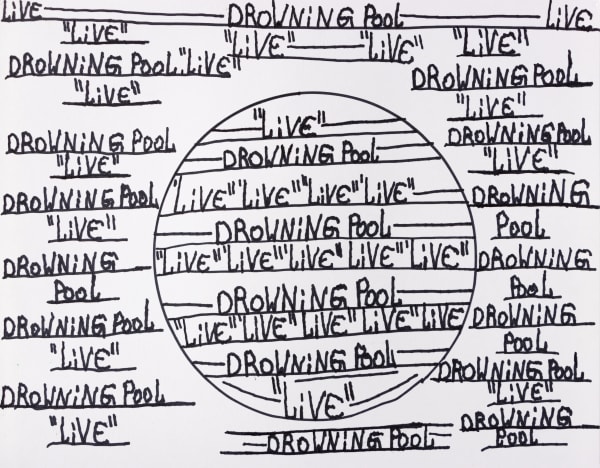 LiVE DROWNiNG POOL LiVE
"LiVE"
DROWNiNG POOL "LiVE"
"LiVE"
DROWNiNG POOL
"LiVE"
DROWNiNG POOL
"LiVE"
DROWNiNG
POOL
DROWNiNG POOL
"LiVE"
DROWNiNG POOL
"LiVE"
"LiVE" "LiVE"
"LiVE"
DROWNiNG POOL
"LiVE" "LiVE" "LiVE" "LiVE"
DROWNiNG POOL
"LiVE" "LiVE" "LiVE" "LiVE" "LiVE"
DROWNiNG POOL
"LiVE" "LiVE" "LiVE" "LiVE" "LiVE"
DROWNiNG POOL
"LiVE"
DROWNiNG POOL
"LiVE"
DROWNiNG POOL
"LiVE"
DROWNiNG POOL
"LiVE"
DROWNiNG
POOL
DROWNiNG
POOL
DROWNiNG
POOL
DROWNiNG POOL
"LiVE"
DROWNiNG
POOL